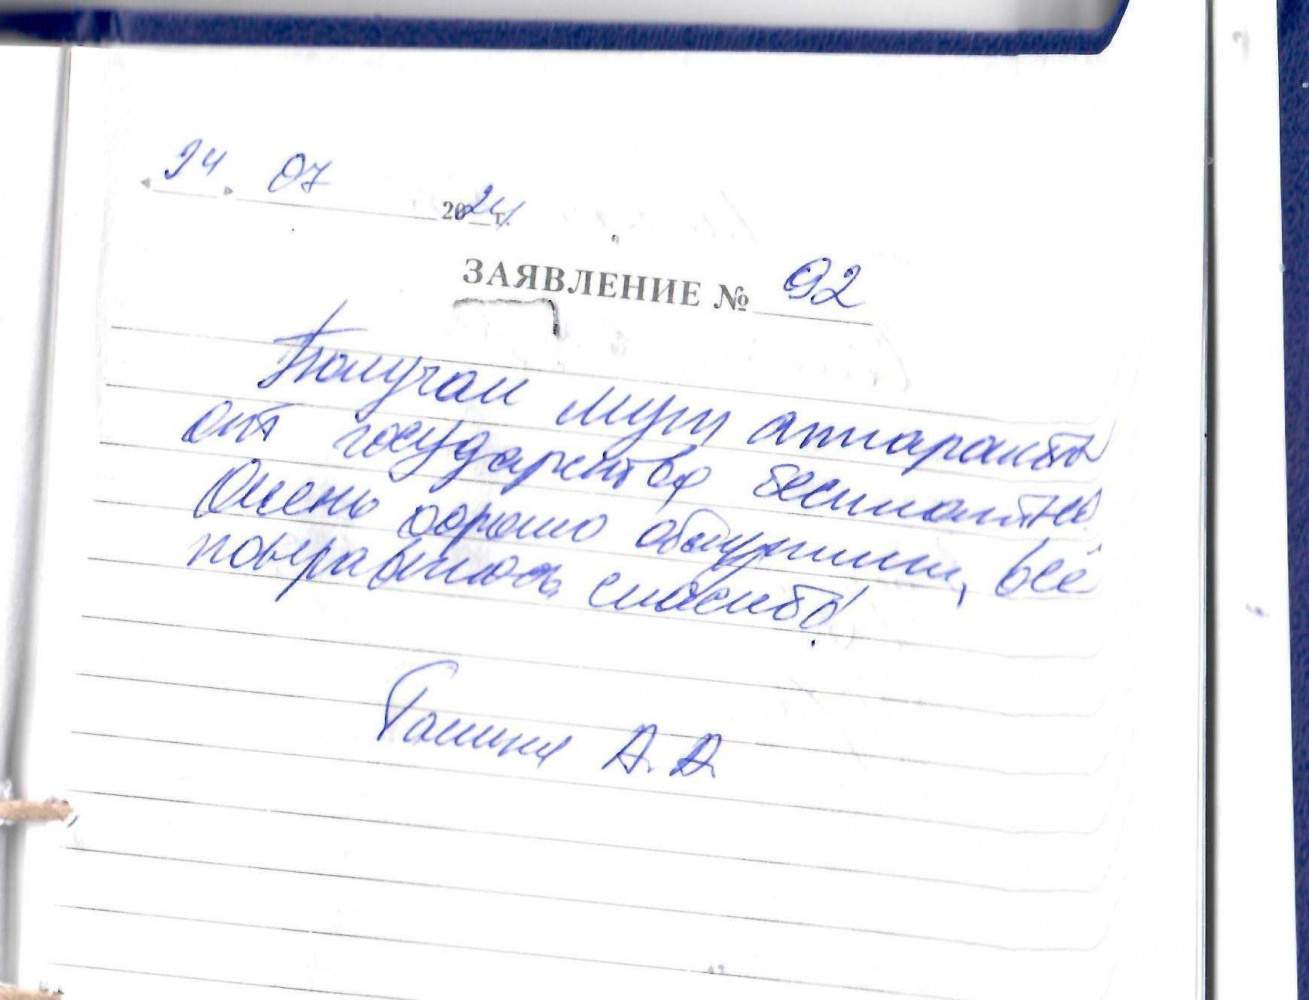 « 24 » 07 2024 г.
ЗАЯВЛЕНИЕ № 92
Получал муж аппараты
от государства бесплатно
Очень хорошо обслужили, всё
понравилось спасибо!
А. А.